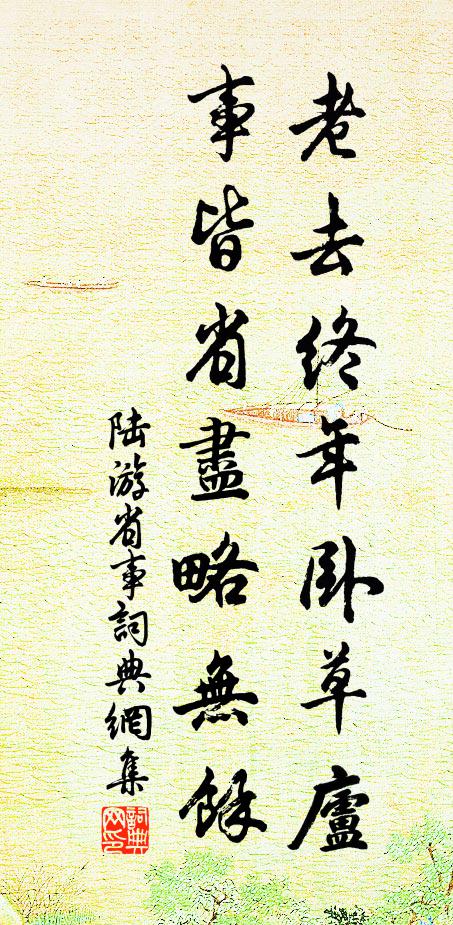 老去終年臥草廬
事皆省盡略無餘
陆游省事詞典網集
詞典網印